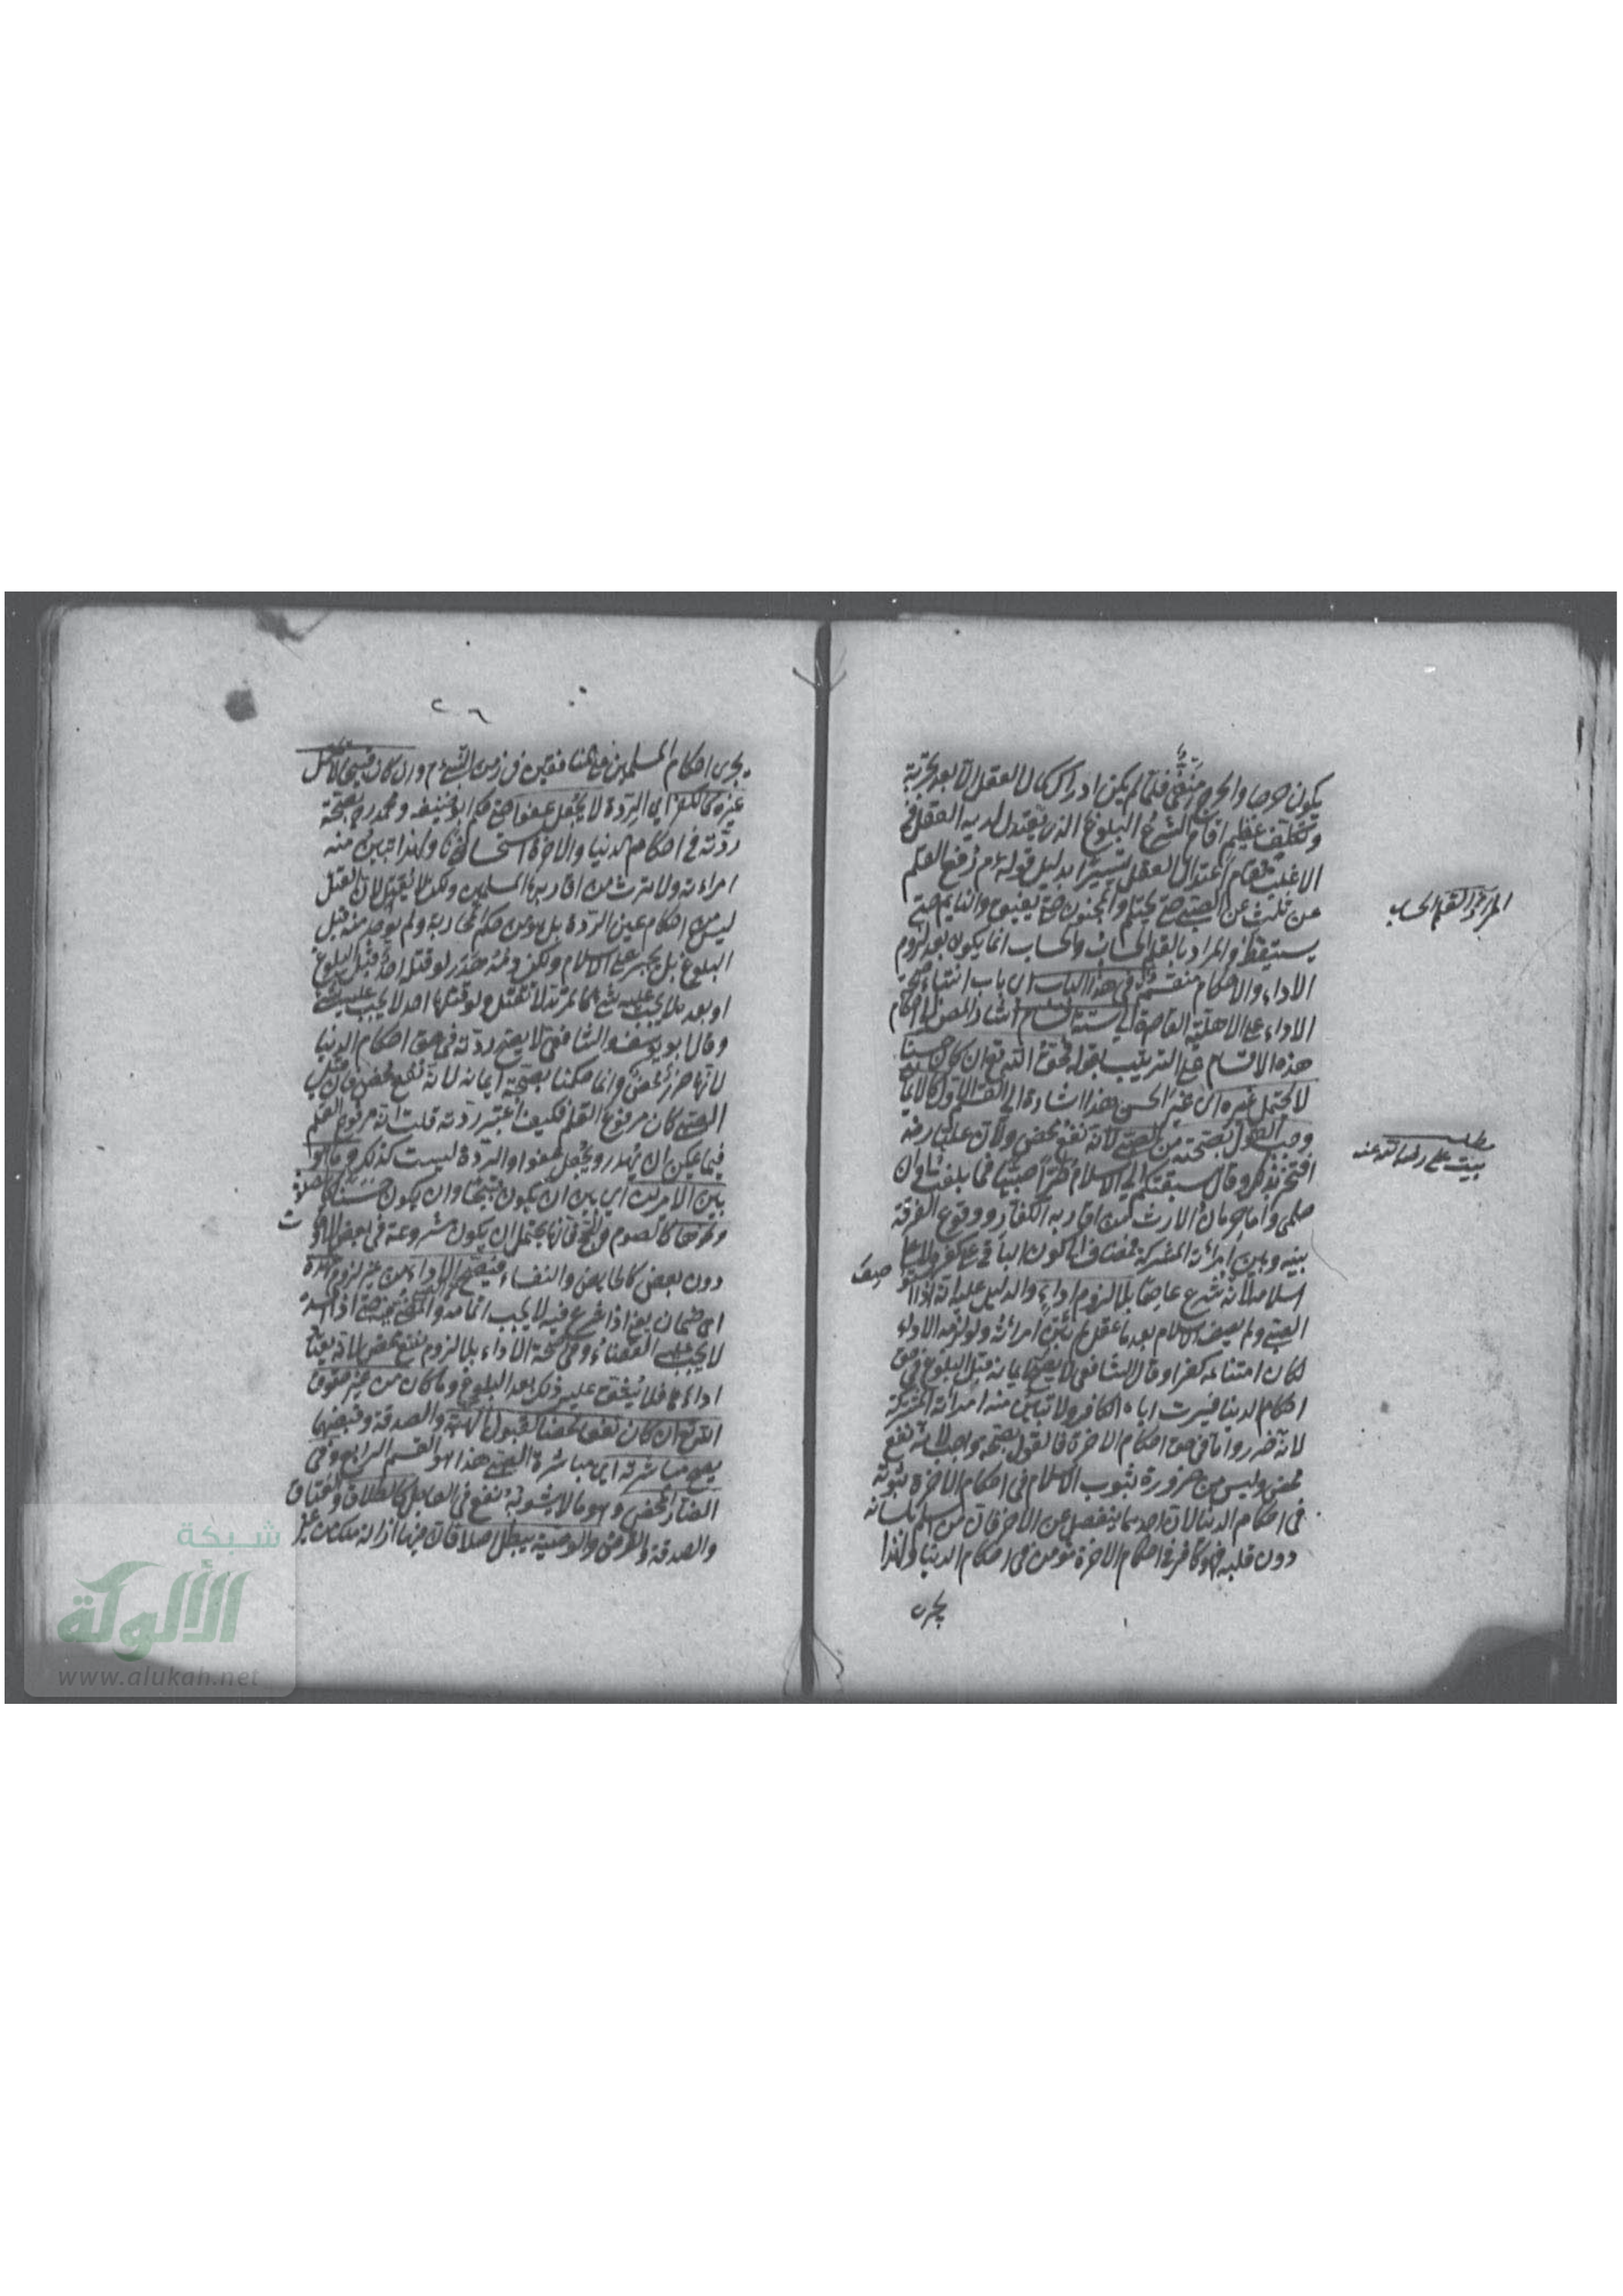 يكون حرجا والحرج منتفى فلما لم يكن ادراك كمال العقل الا بعد تجربة
وتكلف عظيم اقام الشرع البلوغ الذى يعتدل لديه العقل فى
الاغلب مقام اعتدال العقل تيسيرا بدليل قوله عم رفع القلم
عن ثلث عن الصبى حتى يحتلم والمجنون حتى يفيق والنايم حتى
يستيقظ والمراد بالقلم الحساب والحساب انما يكون بعد لزوم
الاداء والاحكام منقسمة فى هذا الباب اى باب ابتناء صحة
الاداء على الاهلية القاصرة الى ستة اقسام اشار المص الى احكام
هذه الاقسام على الترتيب بقوله فحق الله تع ان كان حسنا
لا يحتمل غيره اى غير الحسن هذا اشارة الى القسم الاول كالايمان
وجب القول بصحته من الصبى لانه نفع محض ولان عليا رضه
افتخر بذلك وقال سبقتكم الى الاسلام طرا صبيا ما بلغت اوان
حلمى واما حرمان الارث من اقاربه الكفار ووقوع الفرقة
بينه وبين امرأته المشركة فمضاف الى كفر الباقى على كفره لا الى
اسلامه لانه شرع عاصما بلا لزوم اداء والدليل عليه انه اذا
الصبى ولم يصف الاسلام بعد ما عقل لم تبن امرأته ولو لزمه الاداء
لكان امتناعه كفرا وقال الشافعى لا يصح ايمانه قبل البلوغ فى حق
احكام الدنيا فيرث اباه الكافر ولا تبين منه امرأته المشركة
لانه ضرر واما فى حق احكام الاخرة فالقول بصحته واجب لانه نفع
محض وليس من ضرورة ثبوت الاسلام فى احكام الاخرة ثبوته
فى احكام الدنيا لان احدهما ينفصل عن الاخر فان من اسلم بلسانه
دون قلبه فهو كافر فى احكام الاخرة مؤمن فى احكام الدنيا ولهذا
يجرى
المراد من القلم الحساب
مطلب
بيت على رضى الله عنه
٢٦
يجرى احكام المسلمين على المنافقين فى زمن النبى عم وان كان قبيحا لا يحتمل
غيره كالكفر اى الردة لا يجعل عفوا حتى حكم ابو حنيفه ومحمد رح بصحة
ردته فى احكام الدنيا والاخرة استحسانا ولهذا تبين منه
امراءته ولا يرث من اقاربه المسلمين ولكن لا يقتل لان القتل
ليس من احكام عين الردة بل هو من حكم المحاربة ولم توجد منه قبل
البلوغ بل يجبر على الاسلام ولكن دمه هدر لو قتله احد قبل البلوغ
او بعده لا يجب عليه شئ كالمرتدة لا تقتل ولو قتلها احد لا يجب عليه شئ
وقال ابو يوسف والشافعى لا يصح ردته فى حق احكام الدنيا
لانها ضرر محض وانما حكمنا بصحة ايمانه لانه نفع محض فان قيل
الصبى كان مرفوع القلم فكيف اعتبر ردته قلت انه مرفوع القلم
فيما يمكن ان يهدر ويجعل عفوا والردة ليست كذلك وما هو
بين الامرين اى بين ان يكون قبيحا وان يكون حسنا كالصلاة
ونحوها كالصوم والحج فانها يحتمل ان يكون مشروعة فى بعض الاوقات
دون بعض كالحايض والنفساء فيصح الاداء من غير لزوم عهدة
اى ضمان يعنى اذا شرع فيه لا يجب اتمامه والمضى فيه حتى اذا افسده
لا يجب عليه القضاء وفى صحة الاداء بلا لزوم نفع محض لانه يعتاد
اداءها فلا يشق عليه ذلك بعد البلوغ وما كان من غير حقوق
الله تع ان كان نفعا محضا كقبول الهبة والصدقة وقبضهما
يصح مباشرته اى مباشرة الصبى هذا هو القسم الرابع وفى
الضار المحض وهو ما لا يشوبه نفع فى العاجل كالطلاق والعتاق
والصدقة والقرض والوصية يبطل اصلا فان فيها ازالة ملك من غير
شبكة
الألوكة
www.alukah.net